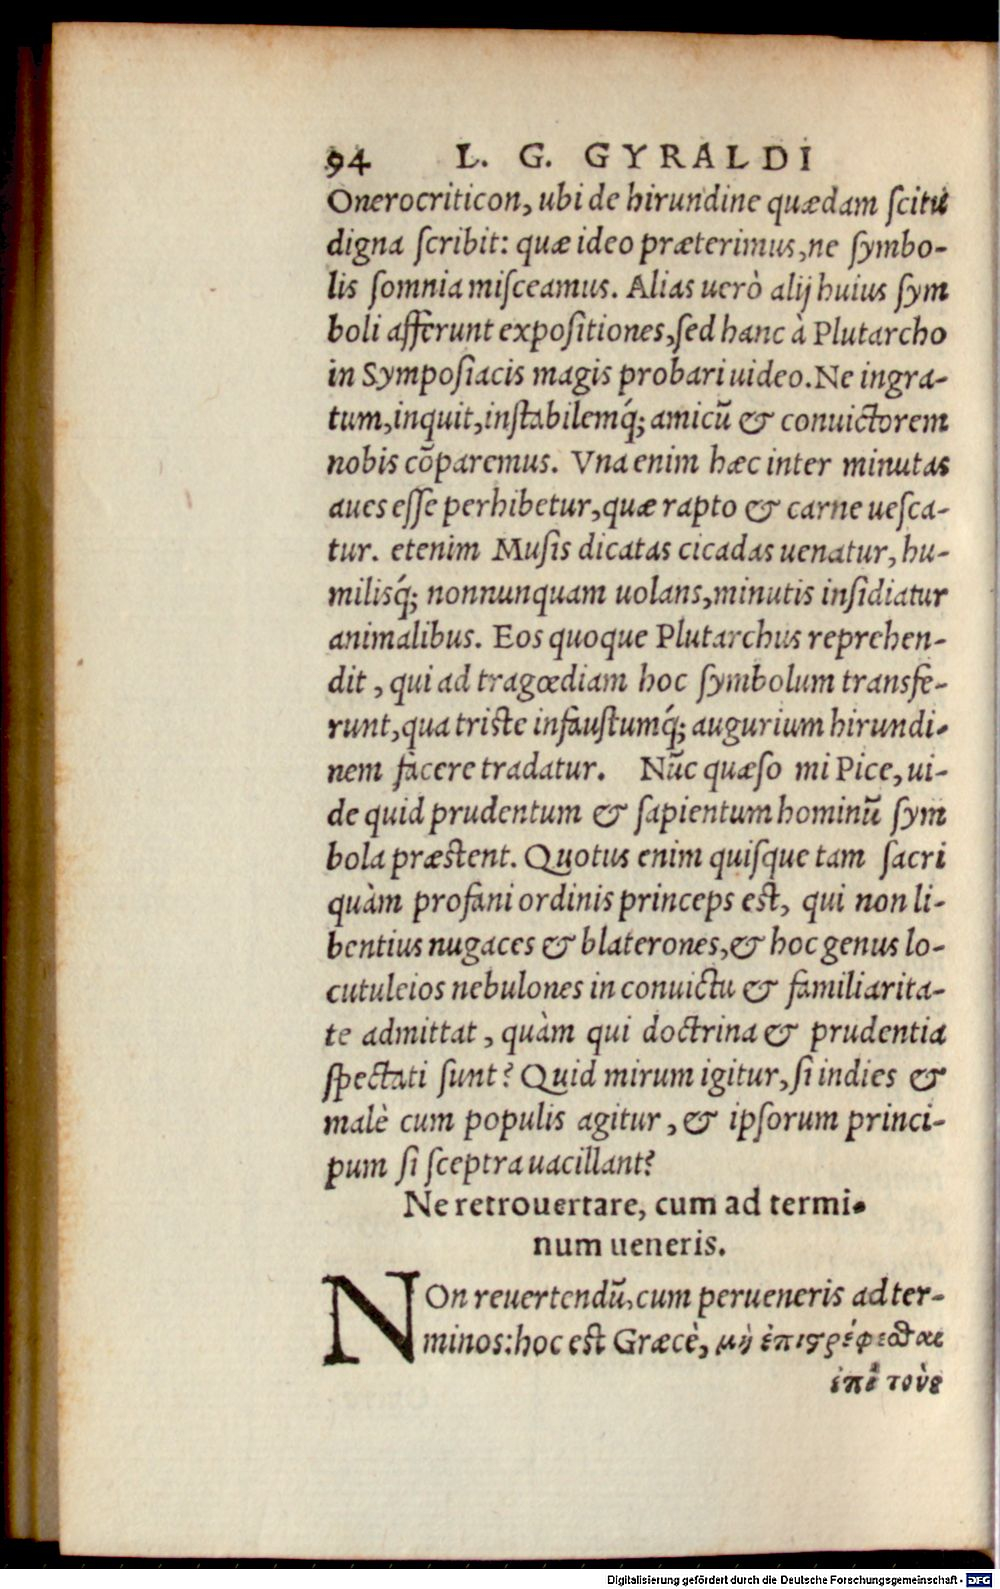 94 L. G. GYRALDI
Onerocriticon, ubi de hirundine quædam ſcitu
digna ſcribit: quæ ideo præterimus, ne ſymbo-
lis ſomnia miſceamus. Alias uerò alij huius ſym
boli afferunt expoſitiones, ſed hanc à Plutarcho
in Sympoſiacis magis probari uideo. Ne ingra-
tum, inquit, inſtabilemq́; amicū & conuictorem
nobis cōparemus. Vna enim hæc inter minutas
aues eſſe perhibetur, quæ rapto & carne ueſca-
tur. etenim Muſis dicatas cicadas uenatur, hu-
milisq́; nonnunquam uolans, minutis inſidiatur
animalibus. Eos quoque Plutarchus reprehen-
dit, qui ad tragœdiam hoc ſymbolum transfe-
runt, qua triste infauſtumq́; augurium hirundi-
nem facere tradatur. Nūc quæſo mi Pice, ui-
de quid prudentum & ſapientum hominū ſym
bola præstent. Quotus enim quiſque tam ſacri
quàm profani ordinis princeps est, qui non li-
bentius nugaces & blaterones, & hoc genus lo-
cutuleios nebulones in conuictu & familiarita-
te admittat, quàm qui doctrina & prudentia
ſpectati ſunt? Quid mirum igitur, ſi indies &
malè cum populis agitur, & ipſorum princi-
pum ſi ſceptra uacillant?
Ne retrouertare, cum ad termi-
num ueneris.
NOn reuertendū, cum perueneris ad ter-
minos: hoc est Græcè, μὴ ἐπιστρέφεσθαι
ἐπὶ τοὺς
Digitalisierung gefördert durch die Deutsche Forschungsgemeinschaft - DFG